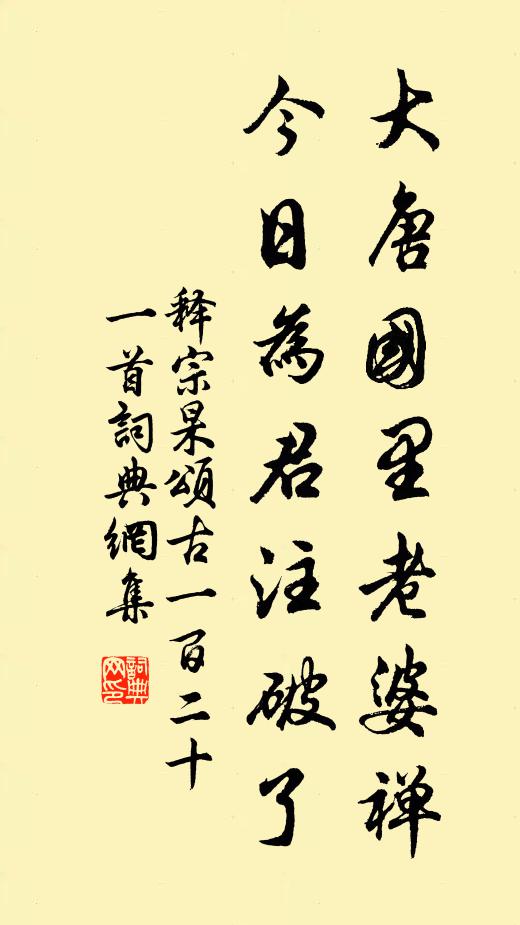 大唐國里老婆禅
今日為君注破了
释宗杲頌古一百二十
一首詞典網集
詞典
网印